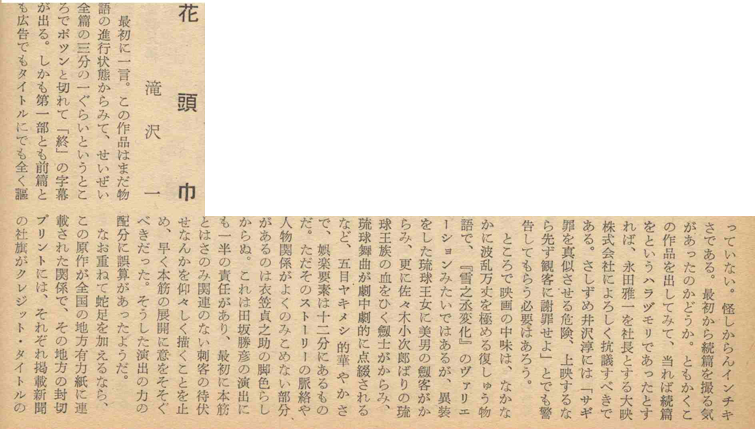 花頭巾
滝沢一
最初に一言。この作品はまだ物
語の進行状態からみて、せいぜい
全篇の三分の一ぐらいというとこ
ろでポツンと切れて「終」の字幕
が出る。しかも第一部とも前篇と
も広告でもタイトルにでも全く謳
っていない。怪しからんインチキ
さである。最初から続篇を撮る気
があったのかどうか。ともかくこ
の作品を出してみて、当れば続篇
をというハラヅモリであったとす
れば、永田雅一を社長とする大映
株式会社によろしく抗議すべきで
ある。さしずめ井沢淳には「サギ
罪を真似させる危険、上映するな
ら先ず観客に謝罪せよ」とでも警
告してもらう必要はあろう。
ところで映画の中味は、なかな
かに波乱万丈を極める復しゅう物
語で、『雪之丞変化』のヴァリエ
ーションみたいではあるが、異装
をした琉球王女に美男の剣客がか
らみ、更に佐々木小次郎ばりの琉
球王族の血をひく剣士がからみ、
琉球舞曲が劇中劇的に点綴される
など、五目ヤキメシ的華やかさ
で、娯楽要素は十二分にあるもの
だ。ただそのストーリーの脈絡や
人物関係がよくのみこめない部分
があるのは衣笠貞之助の脚色らし
からぬ。これは田坂勝彦の演出に
も一半の責任があり、最初に本筋
とはさのみ関連のない刺客の待伏
せなんかを仰々しく描くことを止
め、早く本筋の展開に意をそそぐ
べきだった。そうした演出の力の
配分に誤算があったようだ。
なお重ねて蛇足を加えるなら、
この原作が全国の地方有力紙に連
載された関係で、その地方の封切
プリントには、それぞれ掲載新聞
の社旗がクレジット・タイトルの